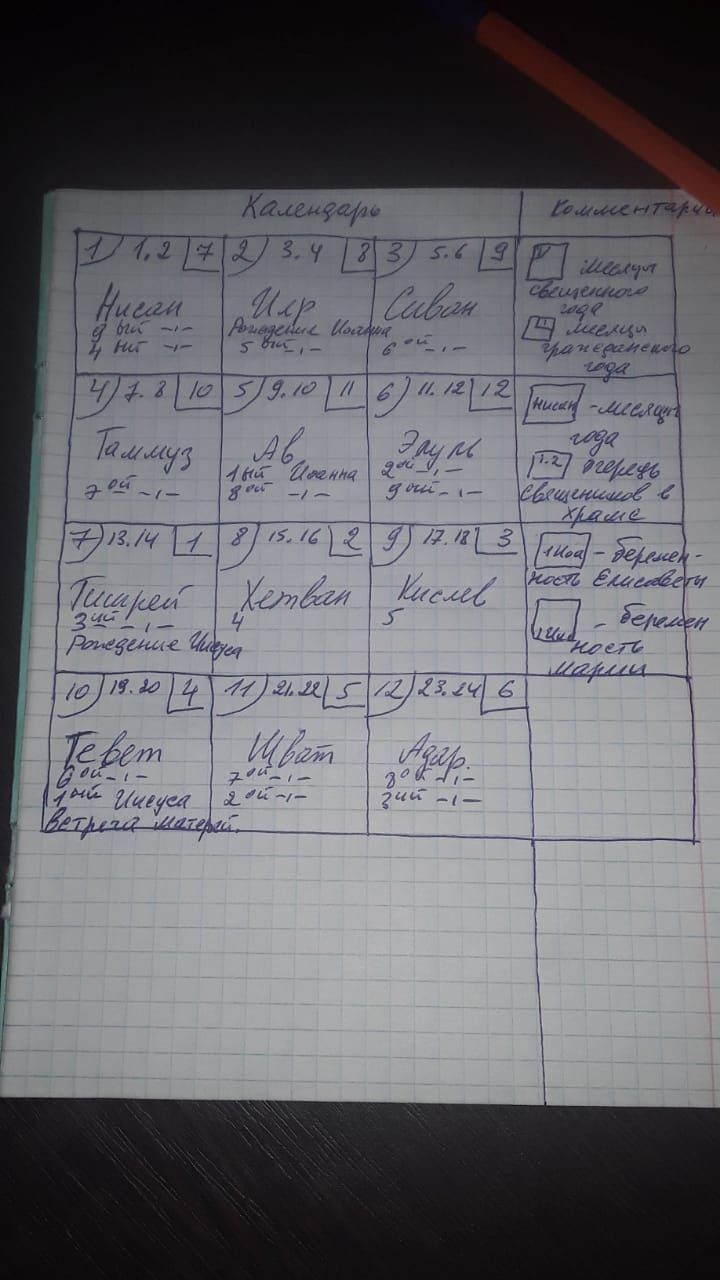 Календарь
Комментарии
1) 1.2 7
Нисан
9 ый -,-
4 ый -,-
2) 3.4 8
Ияр
Рождение Иоанна
5 ый -,-
3) 5.6 9
Сиван
6 ой -,-
месяцы
священного
года
месяцы
гражданского
года
4) 7.8 10
Таммуз
7 ой -,-
5) 9.10 11
Ав
1 ый Иоанна
8 ой -,-
6) 11.12 12
Элуль
2 ой -,-
9 ый -,-
Нисан - месяцы
года
1.2 очередь
священиков в
храме
7) 13.14 1
Тишрей
3 ий -,-
Рождение Иисуса
8) 15.16 2
Хетван
4
9) 17.18 3
Кислев
5
1 Иоа - беремен-
ность Елисаветы
1 Иис - беремен
ность
марии
10) 19.20 4
Тевет
6 ой -,-
1 ый Иисуса
встреча матерей.
11) 21.22 5
Шват
7 ой -,-
2 ой -,-
12) 23.24 6
Адар.
8 ой -,-
3 ий -,-